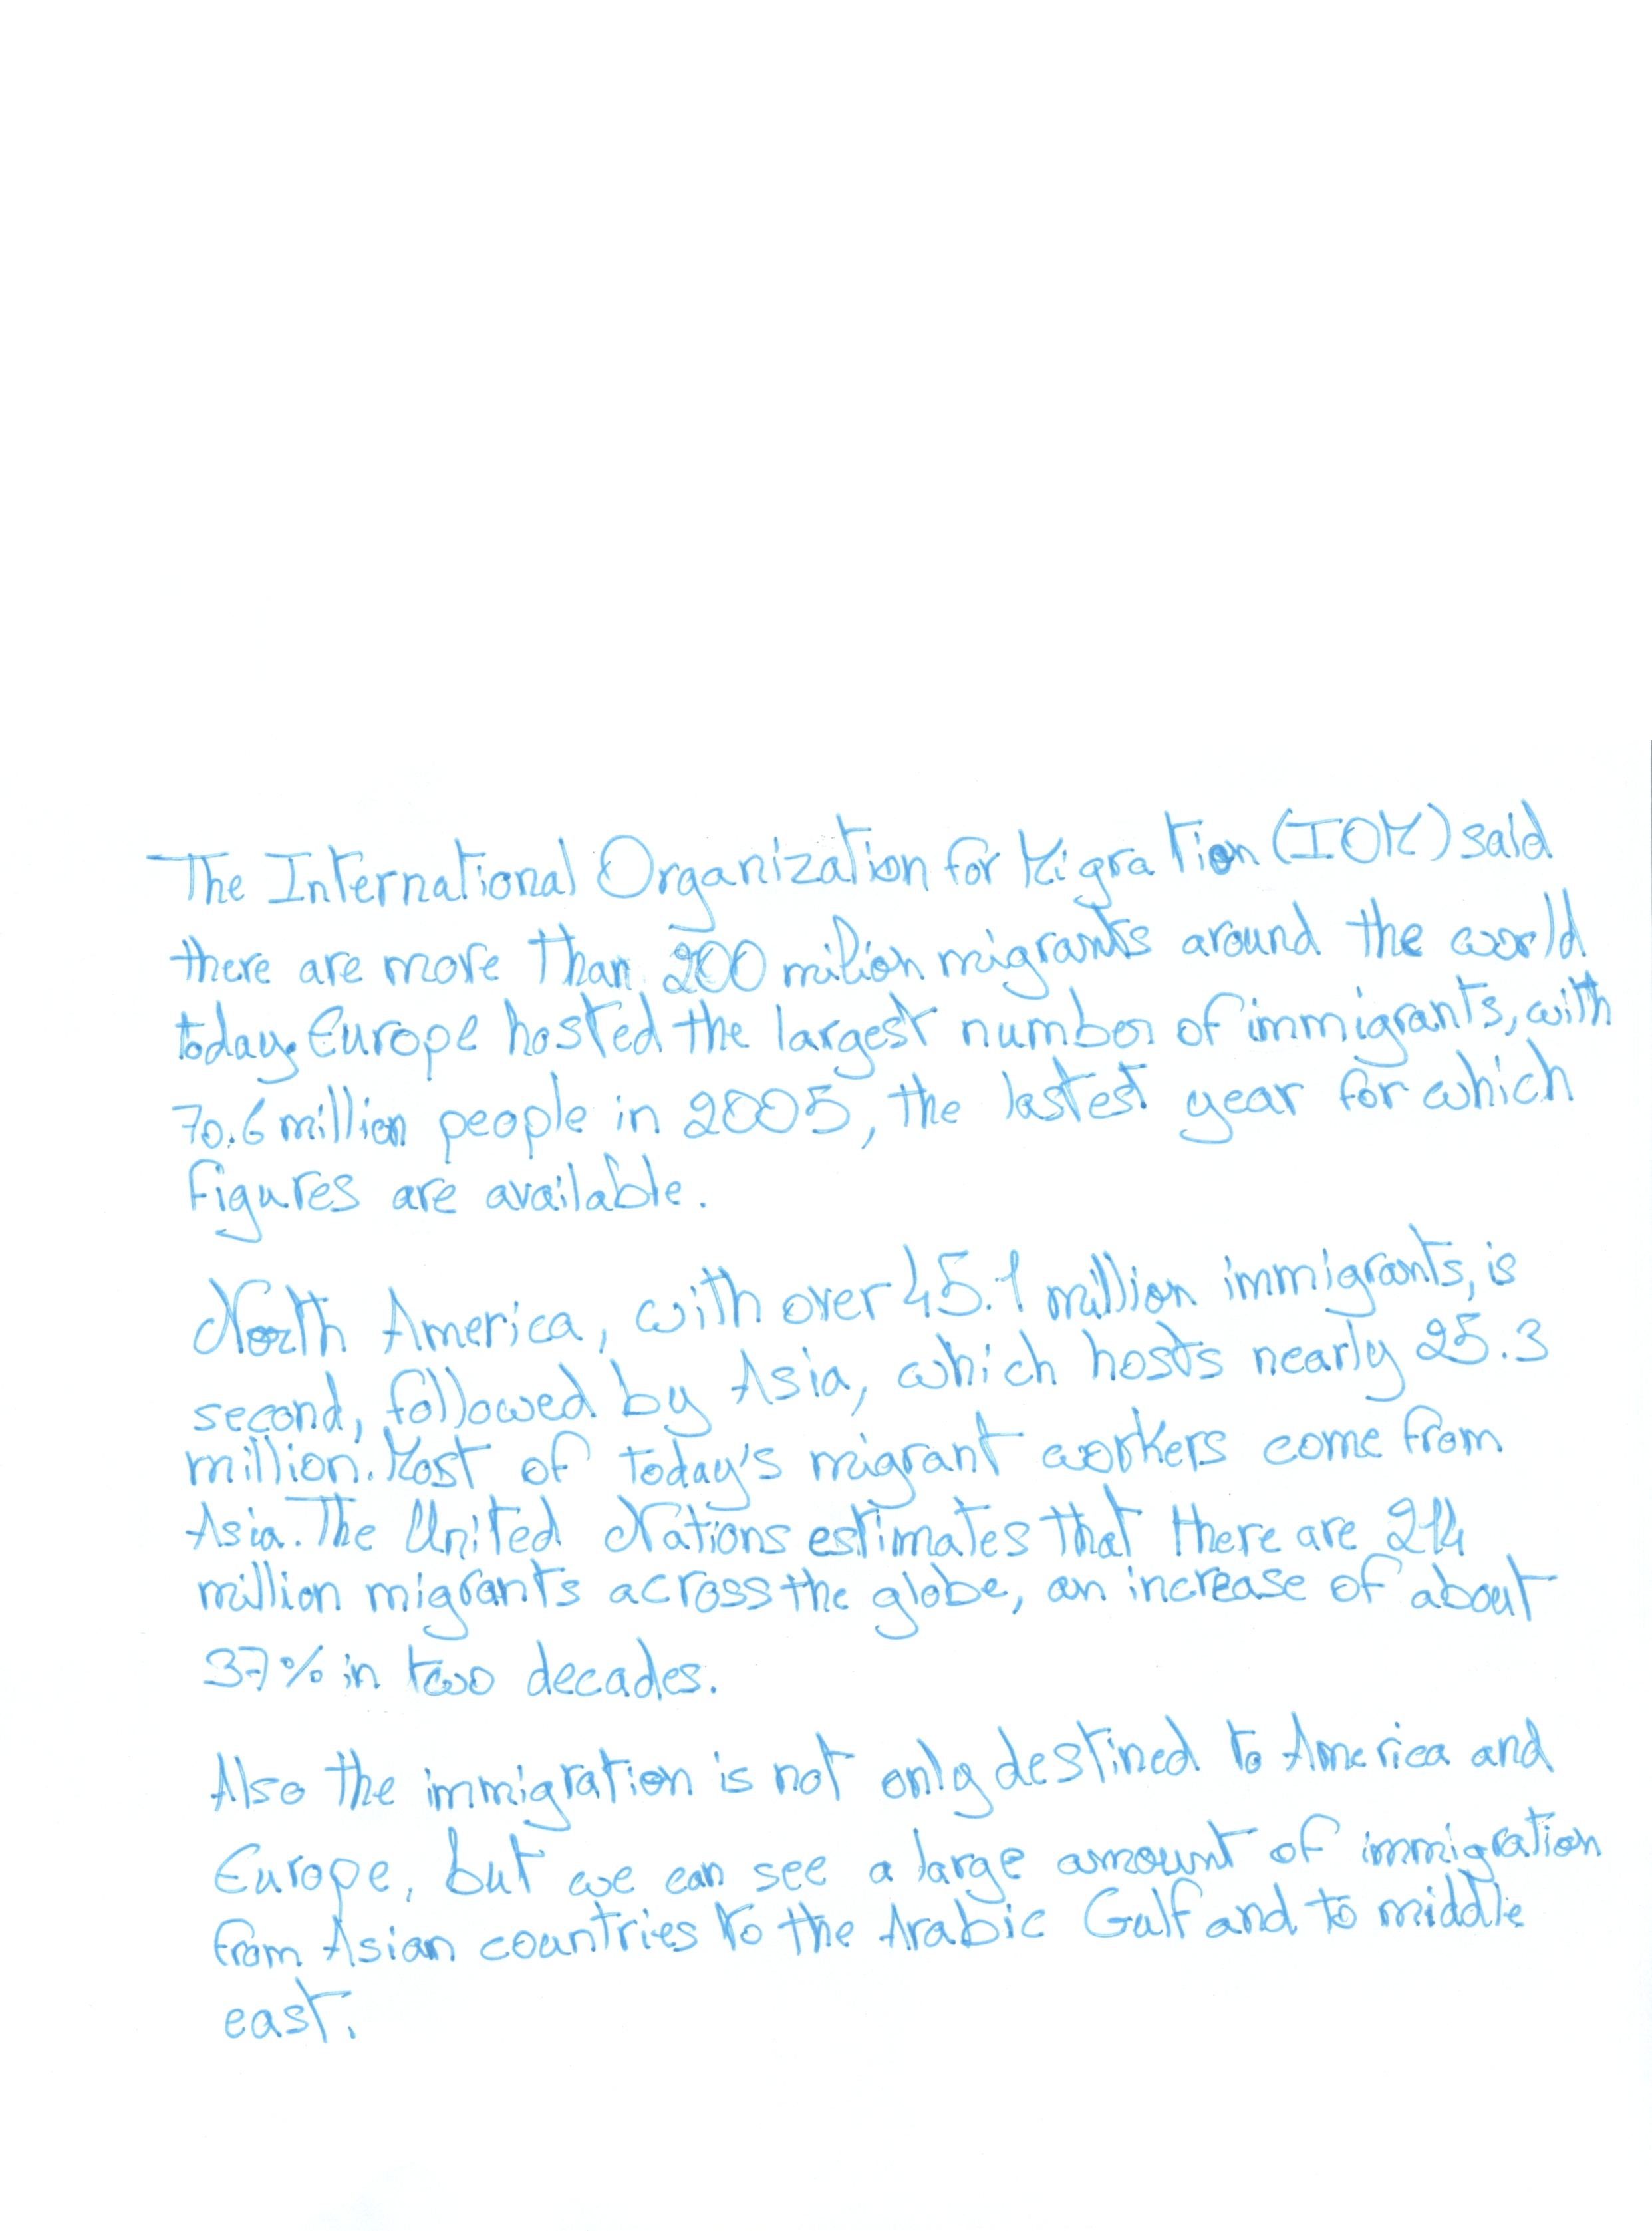 The International Organization for Migration (IOM) said
there are more than 200 milion migrants around the world
today. Europe hosted the largest number of immigrants, with
70.6 million people in 2005, the lastest year for which
figures are available.
North America, with over 45.1 million immigrants, is
second, followed by Asia, which hosts nearly 25.3
million. Most of today's migrant workers come from
Asia. The United Nations estimates that there are 214
million migrants across the globe, an increase of about
37% in two decades.
Also the immigration is not only destined to America and
Europe, but we can see a large amount of immigration
from Asian countries to the Arabic Gulf and to middle
east.